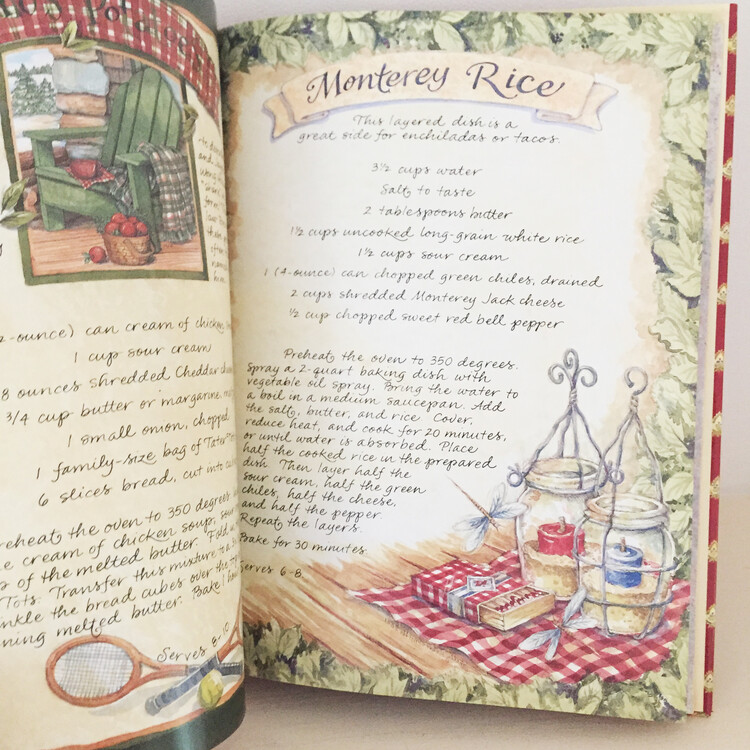 Potatoes
2-ounce) can cream of chicken
1 cup sour cream
8 ounces shredded Cheddar
3/4 cup butter or margarine,
1 small onion, chopped
1 family-size bag of Tater
6 slices bread, cut into
Preheat the oven to 350 degrees.
cream of chicken soup,
of the melted butter. Fold
Tots. Transfer this mixture to a
the bread cubes over the
melted butter. Bake
Serves 8-10
Monterey Rice
This layered dish is a
great side for enchiladas or tacos.
3½ cups water
Salt to taste
2 tablespoons butter
1½ cups uncooked long-grain white rice
1½ cups sour cream
1 (4-ounce) can chopped green chiles, drained
2 cups shredded Monterey Jack cheese
½ cup chopped sweet red bell pepper
Preheat the oven to 350 degrees.
Spray a 2-quart baking dish with
vegetable oil spray. Bring the water to
a boil in a medium saucepan. Add
the salt, butter, and rice. Cover,
reduce heat, and cook for 20 minutes,
or until water is absorbed. Place
half the cooked rice in the prepared
dish. Then layer half the
sour cream, half the green
chiles, half the cheese,
and half the pepper.
Repeat the layers.
Bake for 30 minutes.
Serves 6-8